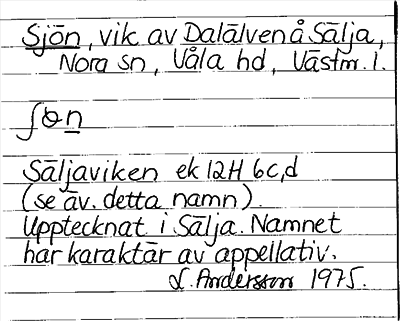 Sjön, vik av Dalälven å Sälja,
Nora sn, Våla hd, Västm. l.
ʃɵn
Säljaviken ek 12H 6c,d
(se äv. detta namn).
Upptecknat i Sälja. Namnet
har karaktär av appellativ.
L. Andersson 1975.